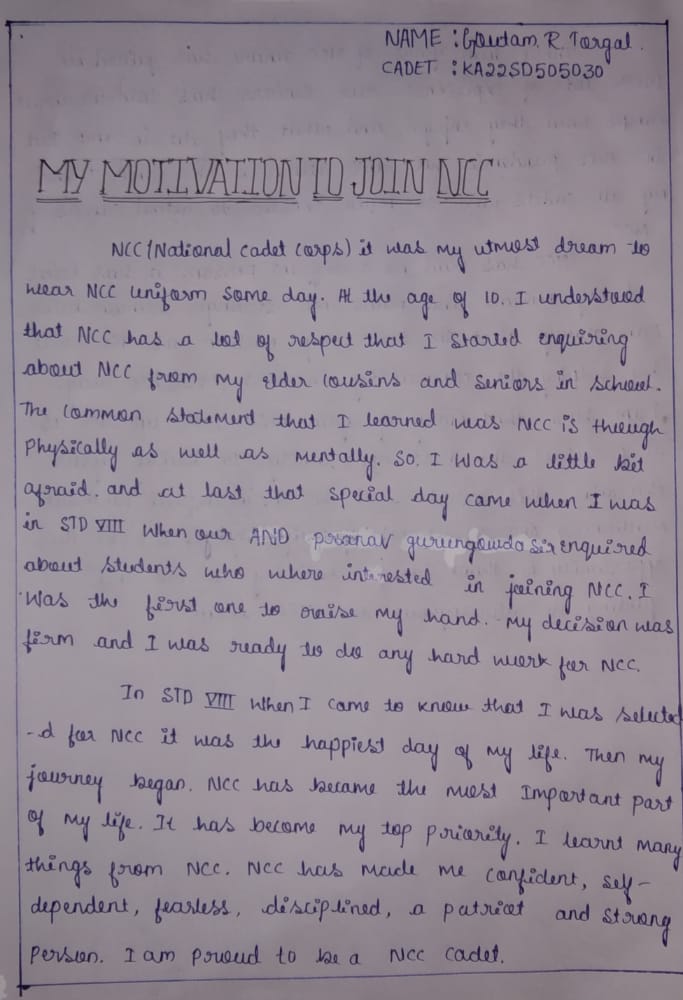 NAME : Goutam. R. Torgal.
CADET : KA22SD505030
MY MOTIVATION TO JOIN NCC
NCC (National cadet Corps) it was my utmost dream to
wear NCC uniform some day. At the age of 10. I understood
that NCC has a lot of respect that I started enquiring
about NCC from my elder cousins and seniors in school.
The common statement that I learned was NCC is through
Physically as well as mentally. So. I was a little bit
afraid. and at last that special day came when I was
in STD VIII when our ANO pranav gurungowda sir enquired
about students who where interested in joining NCC. I
was the first one to raise my hand. my decision was
firm and I was ready to do any hard work for NCC.
In STD VIII when I came to know that I was selected
-d for NCC it was the happiest day of my life. Then my
journey began. NCC has became the most Important part
of my life. It has become my top priority. I learnt many
things from NCC. NCC has made me confident, self-
dependent, fearless, disciplined, a patriot and strong
person. I am proud to be a NCC cadet.